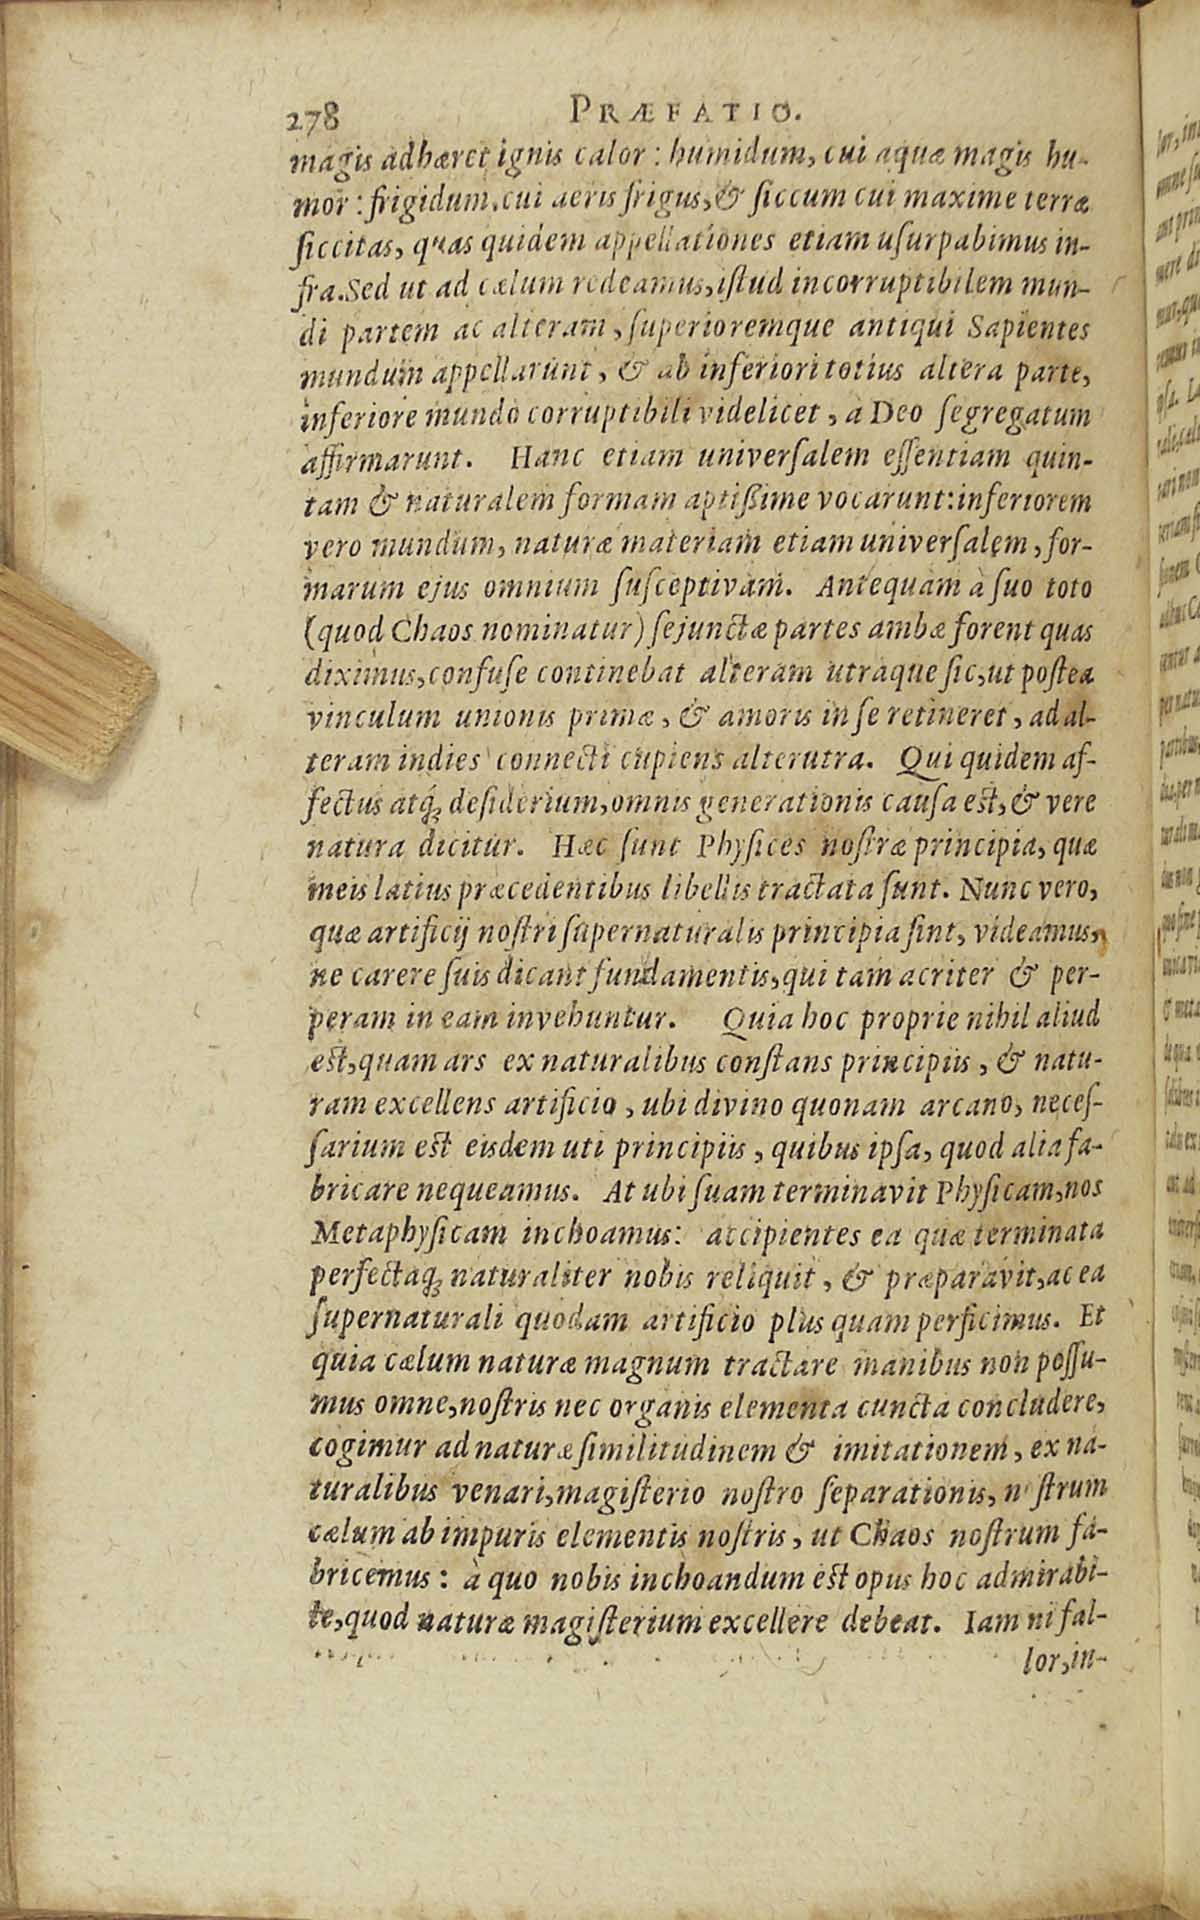 278 PRÆFATIO.
magis adhæret ignis calor : humidum, cui aquæ magis hu-
mor : frigidum, cui aeris frigus, & ſiccum cui maxime terræ
ſiccitas, quas quidem appellationes etiam uſurpabimus in-
fra. Sed ut ad cælum redeamus, iſtud incorruptibilem mun-
di partem ac alteram, ſuperioremque antiqui Sapientes
mundum appellarunt, & ab inferiori totius altera parte,
inferiore mundo corruptibili videlicet, à Deo ſegregatum
affirmarunt. Hanc etiam univerſalem eſſentiam quin-
tam & naturalem formam aptißime vocarunt: inferiorem
vero mundum, naturæ materiam etiam univerſalem, for-
marum ejus omnium ſuſceptivam. Antequam à ſuo toto
(quod Chaos nominatur) ſejunctæ partes ambæ forent quas
diximus, confuſe continebat alteram utraque ſic, ut poſtea
vinculum unionis primæ, & amoris in ſe retineret, ad al-
teram indies connecti cupiens alterutra. Qui quidem af-
fectus atq́; deſiderium, omnis generationis cauſa est, & vere
natura dicitur. Hæc ſunt Phyſices noſtræ principia, quæ
meis latius præcedentibus libellis tractata ſunt. Nunc vero,
quæ artificij noſtri ſupernaturalis principia ſint, videamus,
ne carere ſuis dicant fundamentis, qui tam acriter & per-
peram in eam invehuntur. Quia hoc proprie nihil aliud
est, quam ars ex naturalibus conſtans principiis, & natu-
ram excellens artificio, ubi divino quonam arcano, neceſ-
ſarium est eisdem uti principiis, quibus ipſa, quod alia fa-
bricare nequeamus. At ubi ſuam terminavit Phyſicam, nos
Metaphyſicam inchoamus: accipientes ea quæ terminata
perfectaq́; naturaliter nobis reliquit, & præparavit, ac ea
ſupernaturali quodam artificio plus quam perficimus. Et
quia cælum naturæ magnum tractare manibus non poſſu-
mus omne, noſtris nec organis elementa cuncta concludere,
cogimur ad naturæ ſimilitudinem & imitationem, ex na-
turalibus venari, magiſterio noſtro ſeparationis, noſtrum
cælum ab impuris elementis noſtris, ut Chaos noſtrum fa-
bricemus: à quo nobis inchoandum est opus hoc admirabi-
le, quod naturæ magiſterium excellere debeat. Iam ni fal-
lor, in-